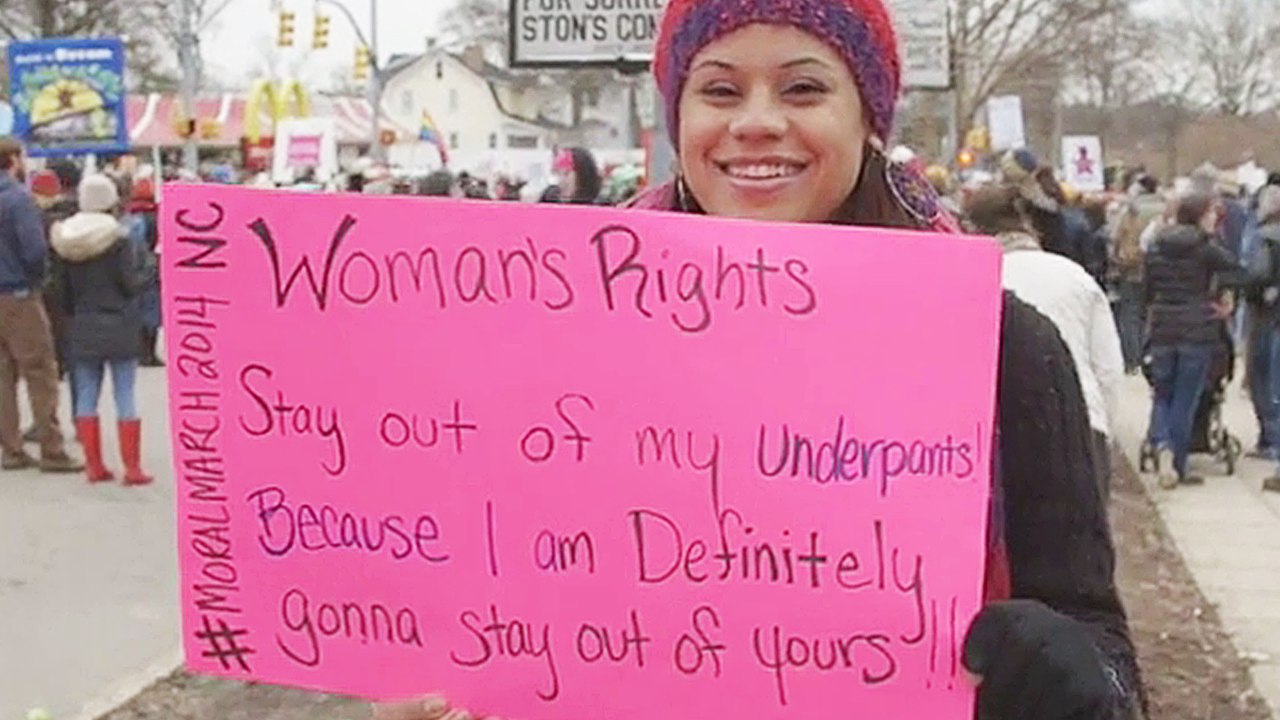 STON'S CON
#MORALMARCH2014 NC
Woman's Rights
Stay out of my underpants!
Because I am Definitely
gonna stay out of yours!!